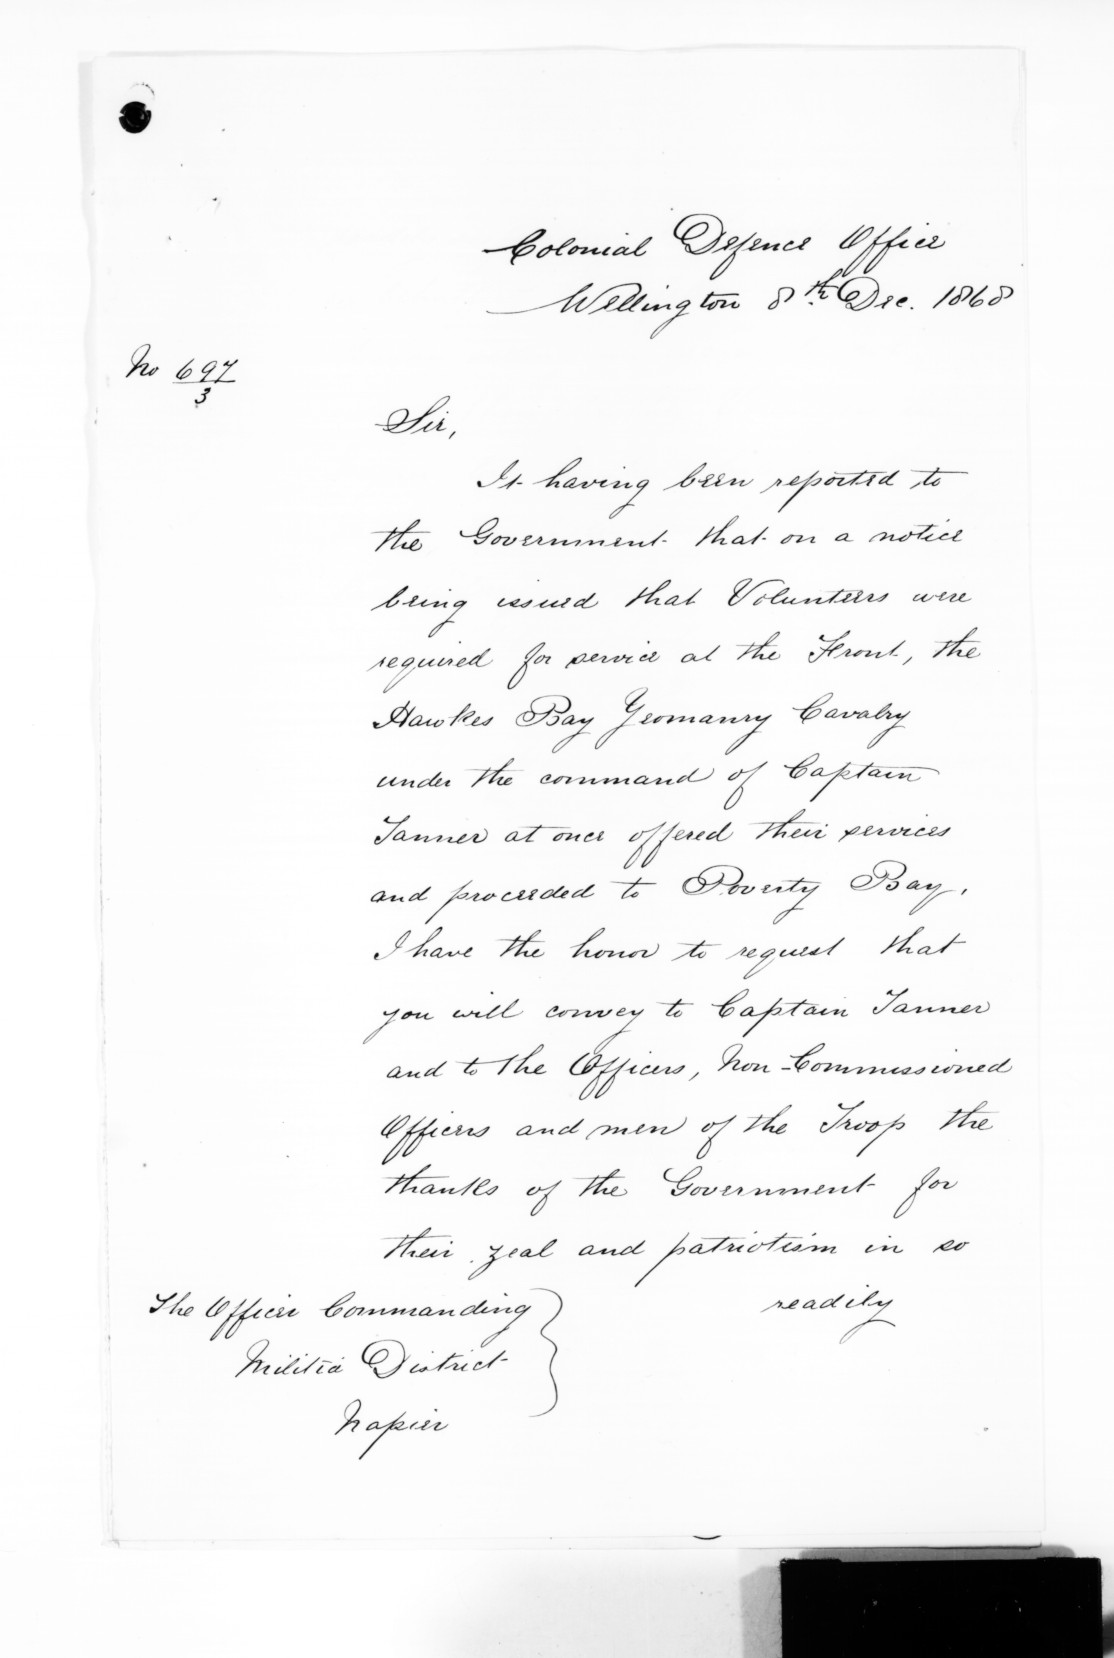 Colonial Defence Office
Wellington 8th Dec. 1868
No 697/3
Sir,
It having been reported to
the Government that on a notice
being issued that Volunteers were
required for service at the Front, the
Hawkes Bay Yeomanry Cavalry
under the command of Captain
Tanner at once offered their services
and proceeded to Poverty Bay,
I have the honor to request that
you will convey to Captain Tanner
and to the Officers, Non-Commissioned
Officers and men of the Troop the
thanks of the Government for
their zeal and patriotism in so
readily
The Officer Commanding
Militia District
Napier